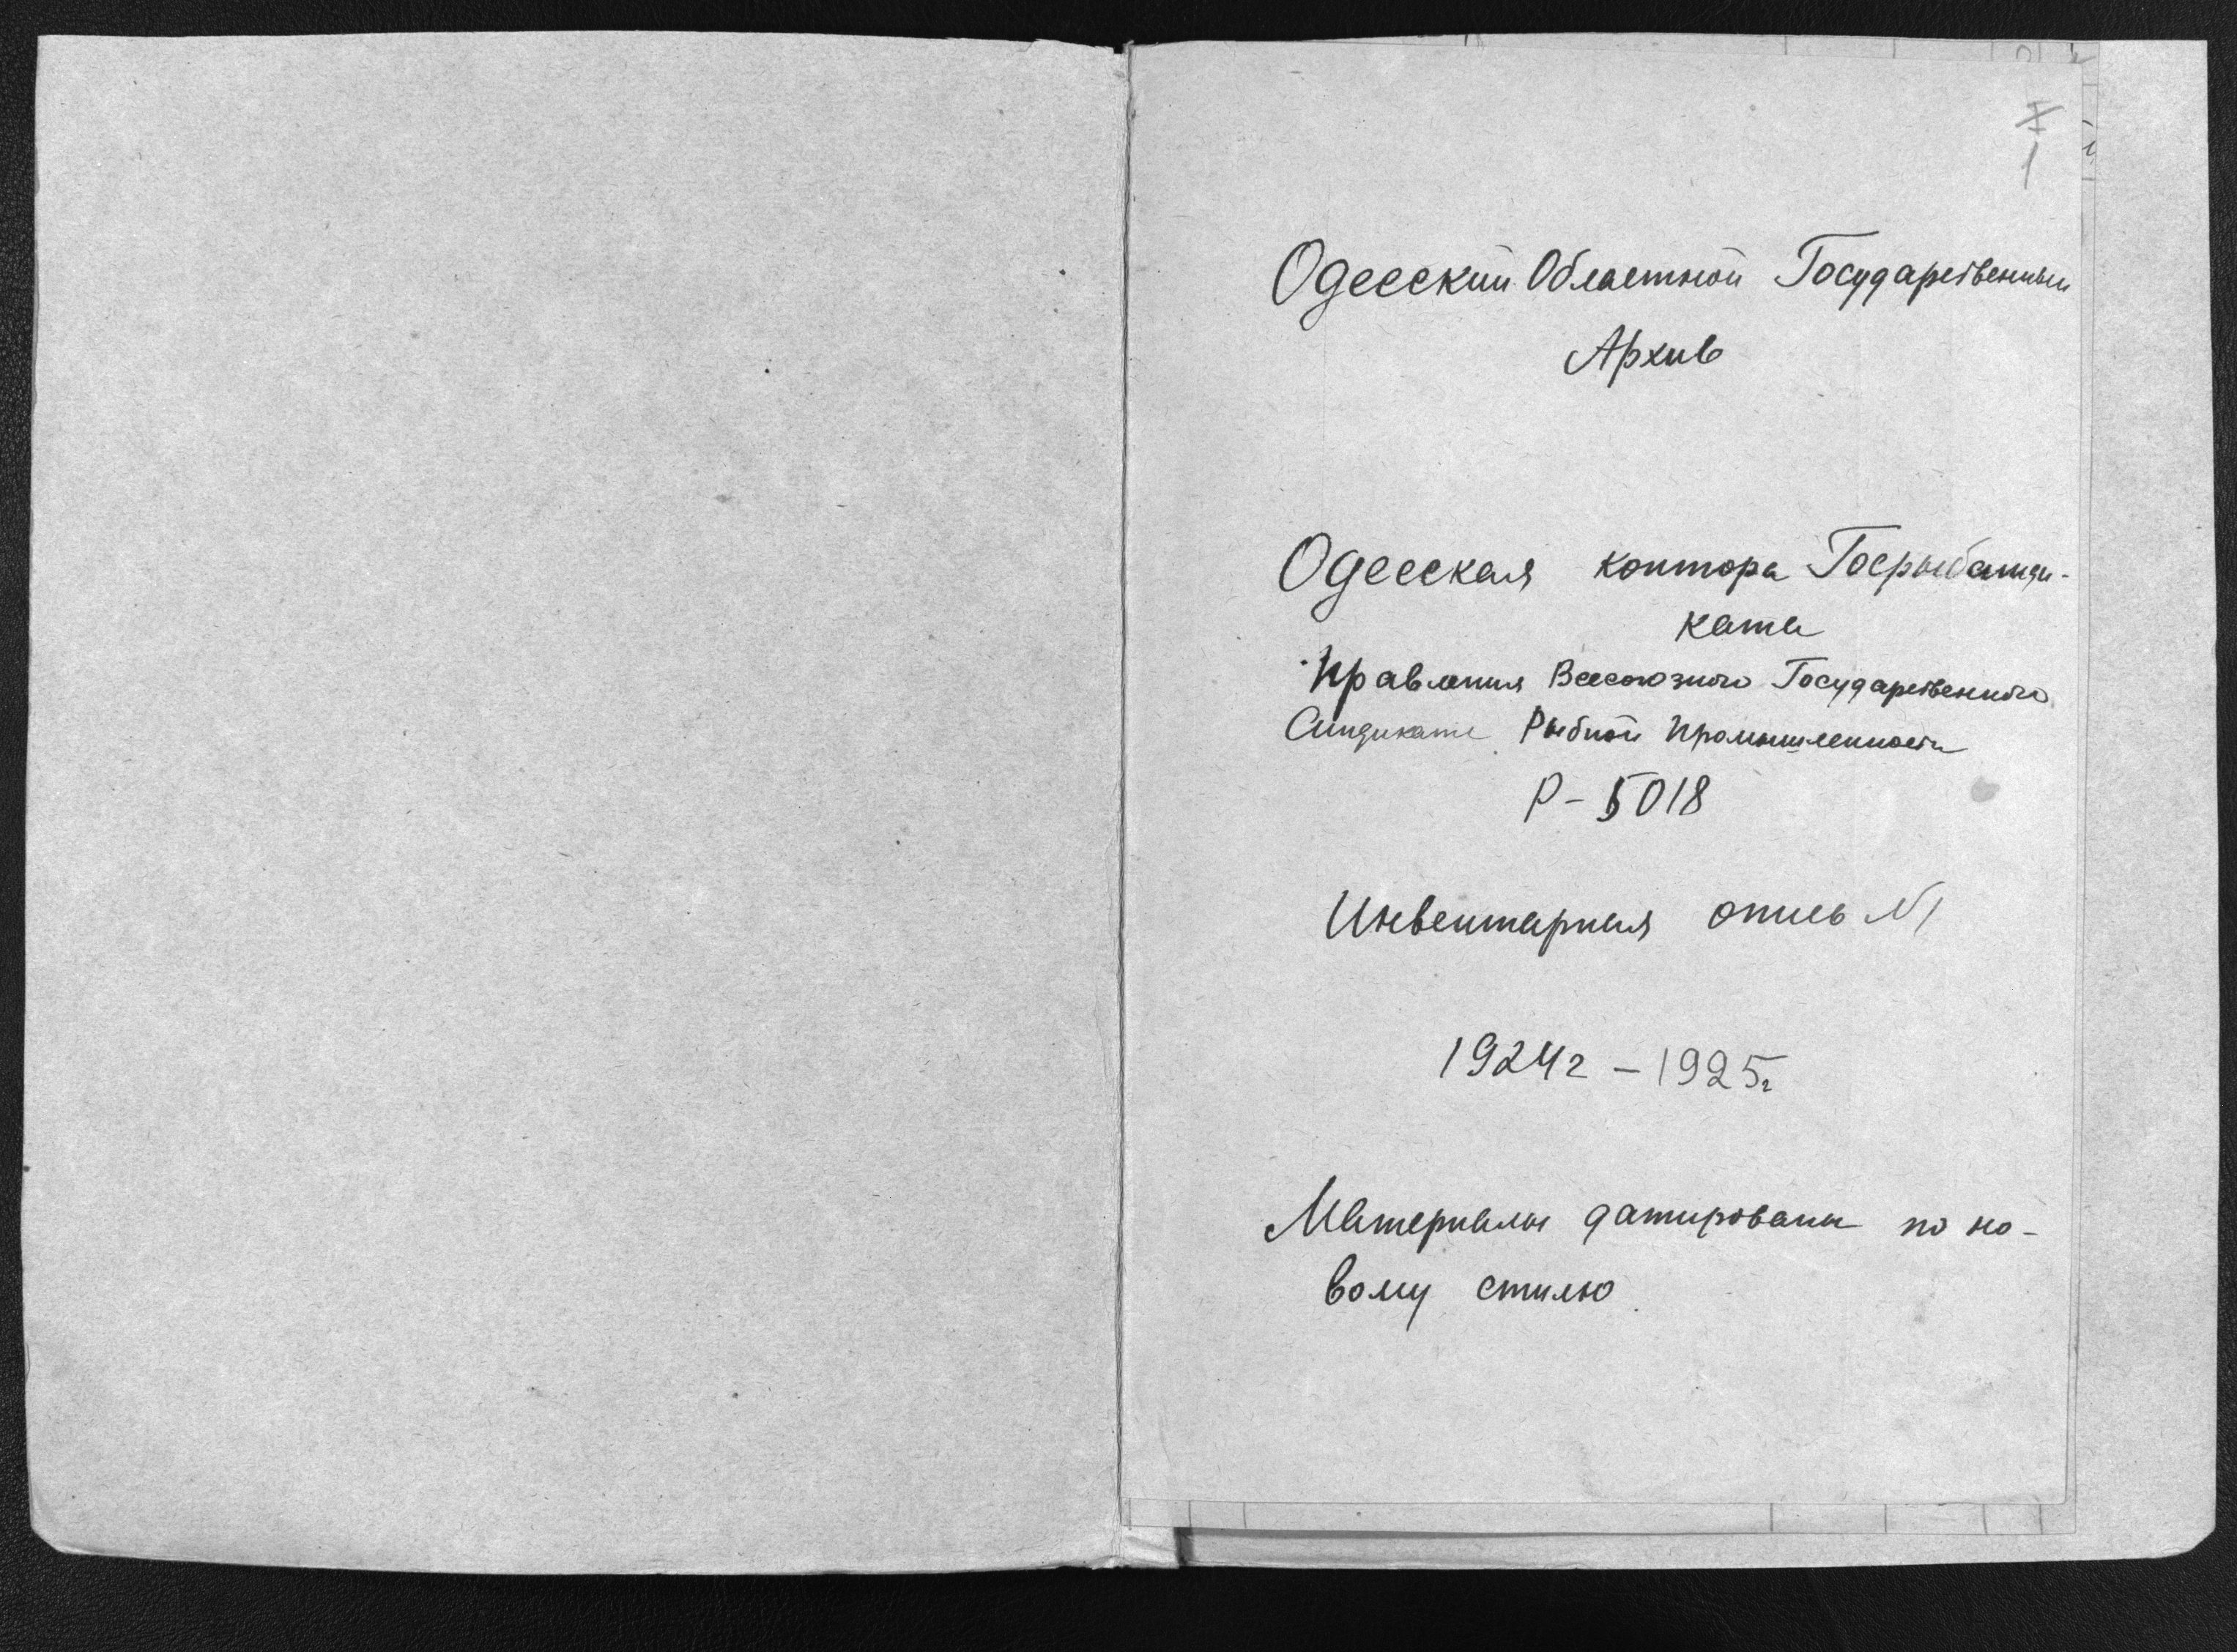 1
Одесский Областной Государственный
Архив
Одесская контора Госрыбсинди-
ката
Правления Всесоюзного Государственного
Синдиката Рыбной Промышленности
Р-5018
Инвентарная опись N1
1924г - 1925г
Материалы датированы по но-
вому стилю